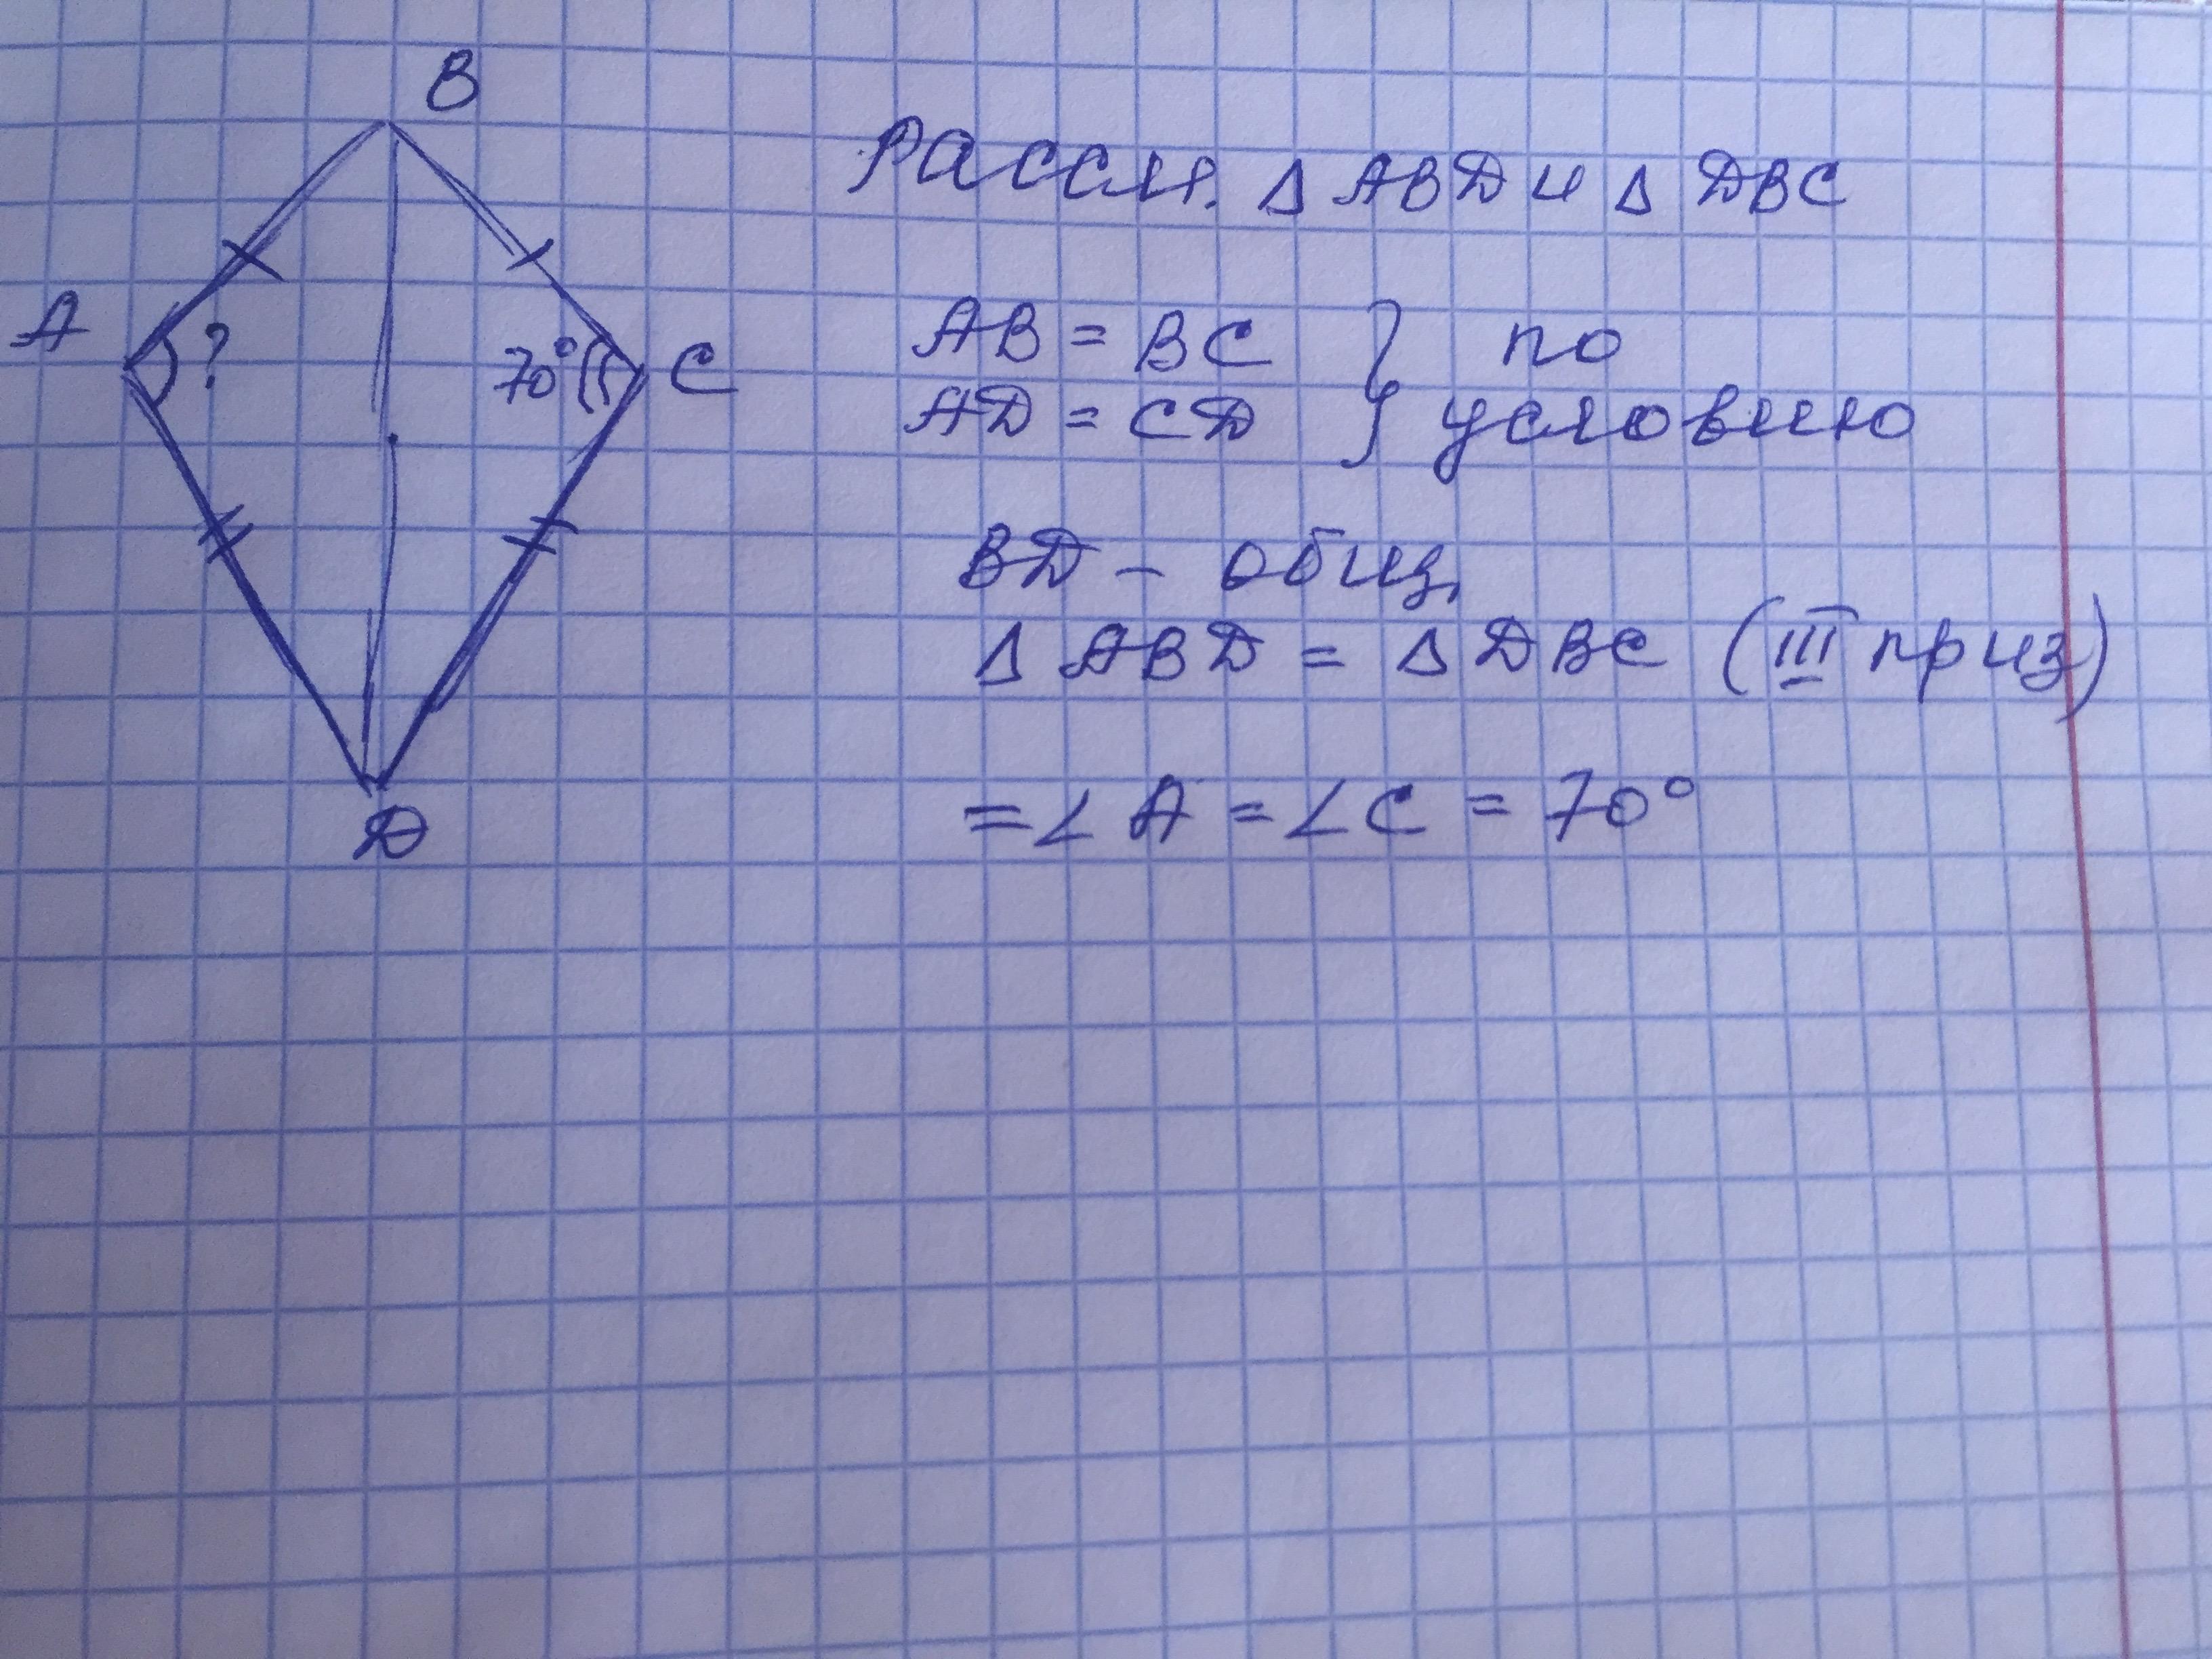 B
A
?
70°
C
D
Рассм. Δ ABD и Δ DBC
AB = BC } по
AD = CD } условию
BD – общ.
Δ ABD = Δ DBC (III приз)
= ∠ A = ∠ C = 70°